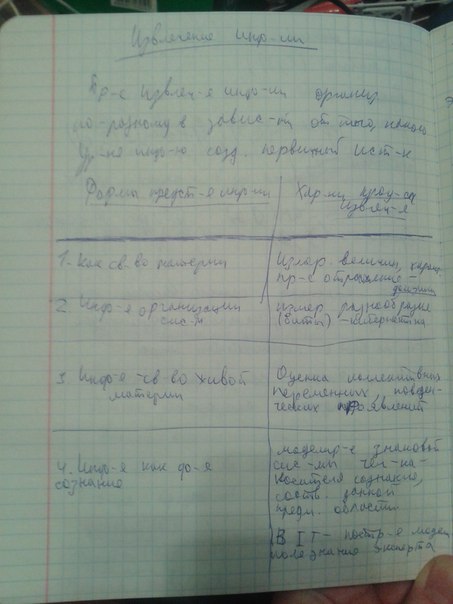 Извлечение инф-ии
Пр-с извлеч-я инф-ии организ.
по-разному в завис-ти от того, какого
ур-ня инф-ю созд. первичный ист-к
Формы предст-я инф-ии
Хар-ки проц-са
извлеч-я
1. Как св-во материи
Измер. величин,
пр-с отражение -
2. Инф-я организации
сис-м
измер разнообразия
(биты) - кибернетика
3. Инф-я - св-во живой
материи
Оценка коллективных
переменных, поведен-
ческих проявлений
4. Инф-я как
сознание
моделир-е знаковой
сис-мы чел-ка-
носителя сознания,
данной
предм. области
В IT - постр-е модели
знание эксперта